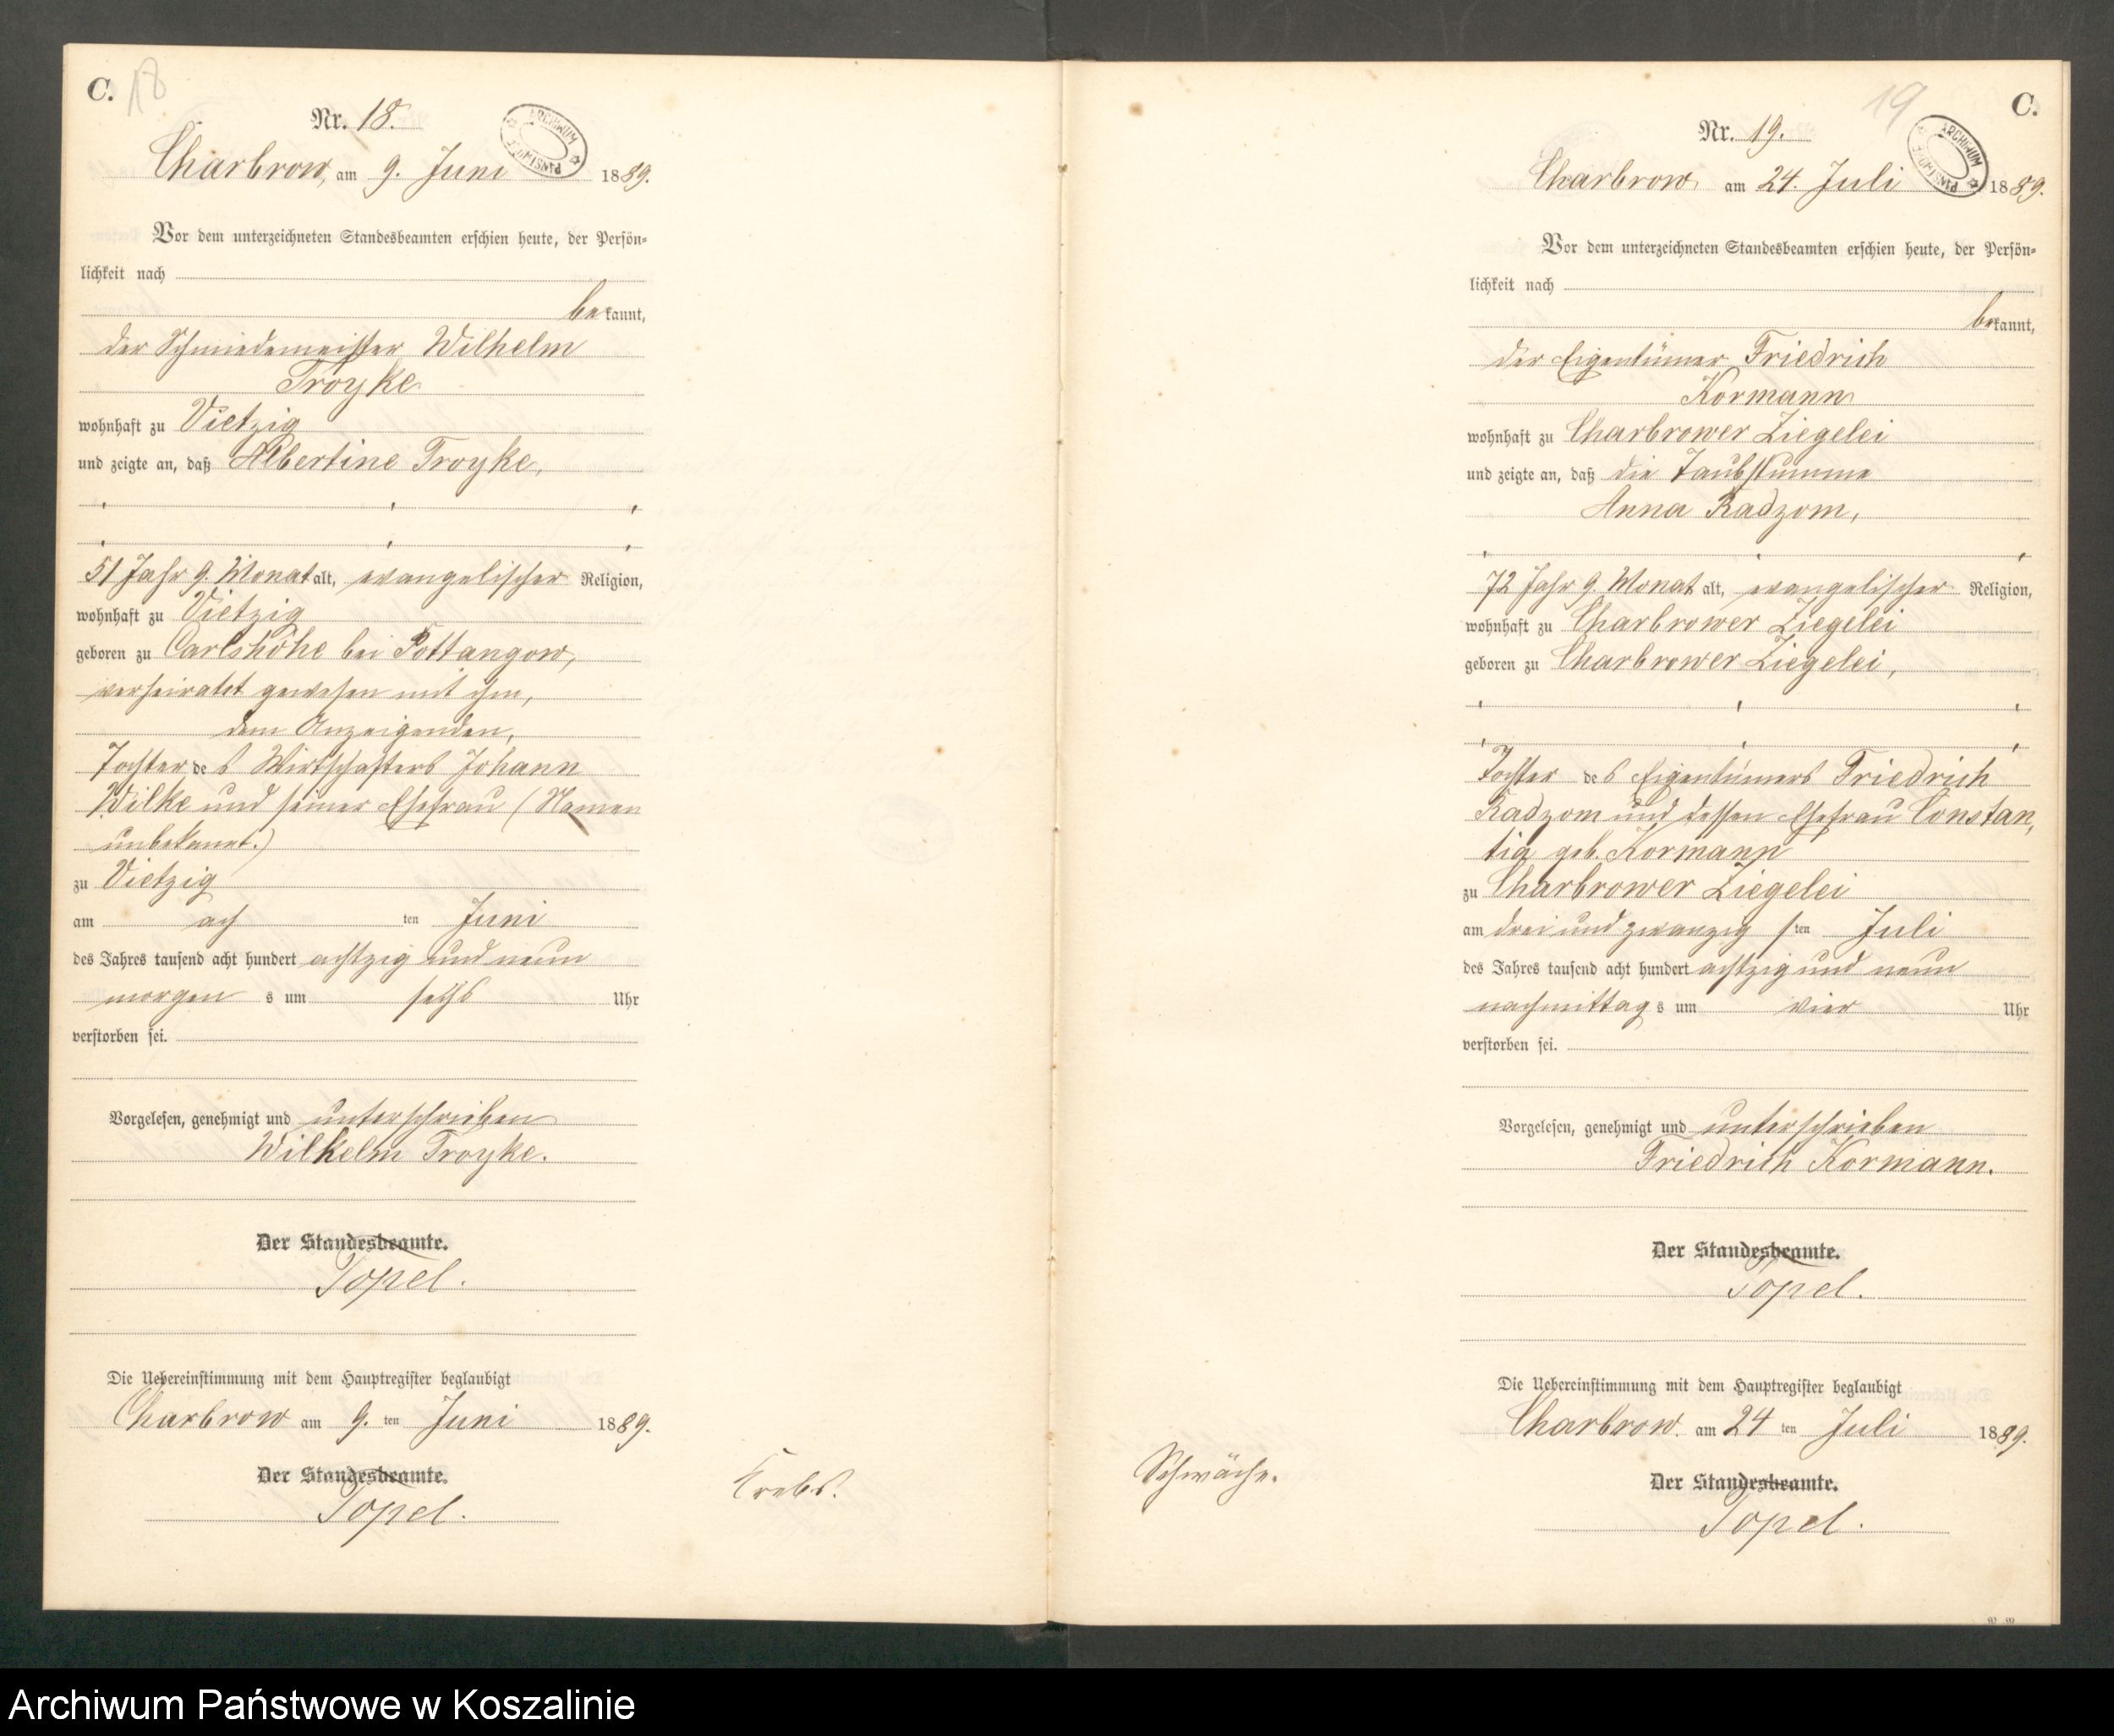 C. 18
Nr. 18.
ARCHIWUM PAŃSTWOWE
Charbrow, am 9. Juni 1889.
Vor dem unterzeichneten Standesbeamten erschien heute, der Persön-
lichkeit nach
bekannt,
der Schmiedemeister Wilhelm
Troyke
wohnhaft zu Vietzig
und zeigte an, daß Albertine Troyke,
51 Jahr 9. Monat alt, evangelischer Religion,
wohnhaft zu Vietzig
geboren zu Carlshöhe bei Pottangow,
verheiratet gewesen mit ihm,
dem Anzeigenden,
Tochter des Wirtschafters Johann
Wilke und seiner Ehefrau (Namen
unbekannt.)
zu Vietzig
am achten Juni
des Jahres tausend acht hundert achtzig und neun
morgens um sechs Uhr
verstorben sei.
Vorgelesen, genehmigt und unterschrieben
Wilhelm Troyke.
Der Standesbeamte.
Topel.
Die Uebereinstimmung mit dem Hauptregister beglaubigt
Charbrow am 9. ten Juni 1889.
Der Standesbeamte.
Topel.
Krebs.
19 C.
Nr. 19.
ARCHIWUM PAŃSTWOWE
Charbrow am 24. Juli 1889.
Vor dem unterzeichneten Standesbeamten erschien heute, der Persön-
lichkeit nach
bekannt,
der Eigentümer Friedrich
Kormann
wohnhaft zu Charbrower Ziegelei
und zeigte an, daß die Taubstumme
Anna Radzom,
72 Jahr 9. Monat alt, evangelischer Religion,
wohnhaft zu Charbrower Ziegelei
geboren zu Charbrower Ziegelei,
Tochter des Eigentümers Friedrich
Radzom und dessen Ehefrau Constan,
tia geb. Kormann
zu Charbrower Ziegelei
am drei und zwanzigsten Juli
des Jahres tausend acht hundert achtzig und neun
nachmittags um vier Uhr
verstorben sei.
Vorgelesen, genehmigt und unterschrieben
Friedrich Kormann.
Der Standesbeamte.
Topel.
Die Uebereinstimmung mit dem Hauptregister beglaubigt
Charbrow. am 24 ten Juli 1889.
Der Standesbeamte.
Topel.
Schwäche.
Archiwum Państwowe w Koszalinie